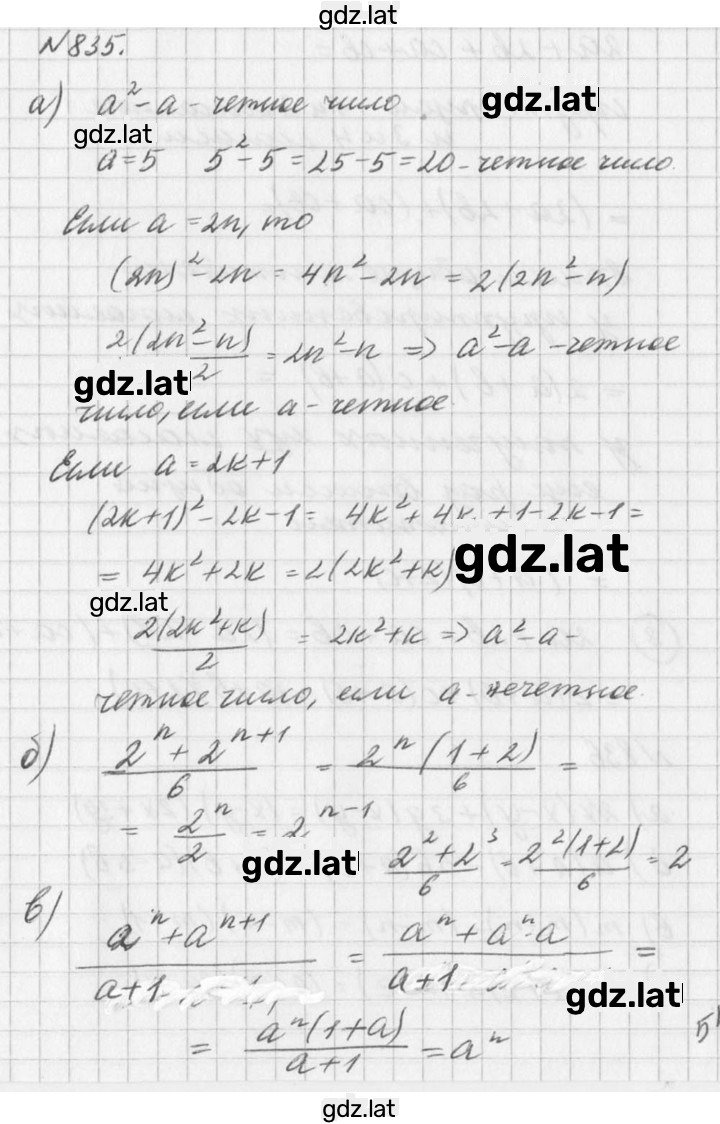 gdz.lat
№835.
а) a² - a - четное число
gdz.lat
gdz.lat
a = 5 5² - 5 = 25 - 5 = 20 - четное число.
Если a = 2n, то
(2n)² - 2n = 4n² - 2n = 2(2n² - n)
2(2n² - n)/2 = 2n² - n => a² - a - четное
gdz.lat
число, если a - четное.
Если a = 2k + 1
(2k+1)² - 2k - 1 = 4k² + 4k + 1 - 2k - 1 =
= 4k² + 2k = 2(2k² + k)
gdz.lat
gdz.lat
2(2k² + k)/2 = 2k² + k => a² - a -
четное число, если a - нечетное.
б) (2ⁿ + 2ⁿ⁺¹)/6 = 2ⁿ(1 + 2)/6 =
= 2ⁿ/2 = 2ⁿ⁻¹
gdz.lat
(2² + 2³)/6 = 2²(1+2)/6 = 2
в) (aⁿ + aⁿ⁺¹)/(a+1) = (aⁿ + aⁿ·a)/(a+1) =
gdz.lat
= aⁿ(1+a)/(a+1) = aⁿ
gdz.lat